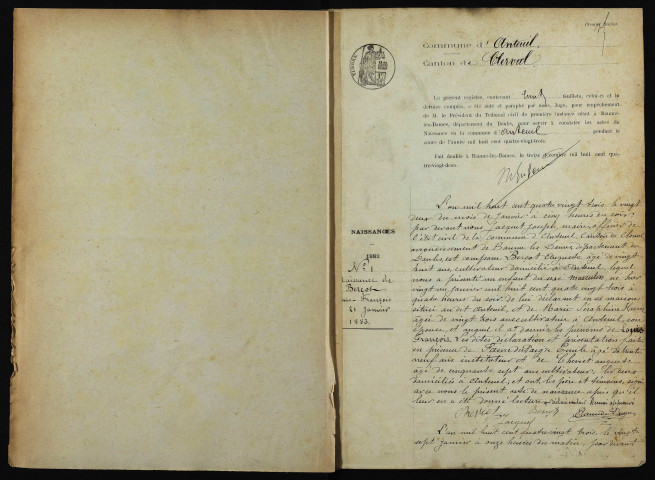 Commune d'Anteuil
Canton de Clerval
Le présent registre, contenant huit feuillets, celui-ci et le
dernier compris, a été coté et paraphé par nous, Juge, pour empêchement
de M. le Président du Tribunal civil de première instance séant à Baume-
les-Dames, département du Doubs, pour servir à constater les actes de
Naissance en la commune d'Anteuil pendant le
cours de l'année mil huit cent quatre-vingt-trois.
Fait double à Baume-les-Dames, le treize décembre mil huit cent qua-
tre-vingt-deux.
NAISSANCES
1883
N° 1
Naissance de
Bercot
François
21 Janvier
1883.
L'an mil huit cent quatre vingt trois le vingt
deux du mois de janvier à cinq heures du soir,
par devant nous Jacquot Joseph, maire officier de
l'état civil de la commune d'Anteuil, canton de Clerval
arrondissement de Baume les Dames département du
Doubs, est comparu Bercot Auguste âgé de vingt
huit ans, cultivateur domicilié à Anteuil, lequel
nous a présenté un enfant du sexe masculin né hier
vingt un janvier mil huit cent quatre vingt trois à
quatre heures du soir de lui déclarant en sa maison
située au dit Anteuil, et de Marie Séraphine
âgée de vingt trois ans cultivatrice à Anteuil, son
épouse, et auquel il a donné les prénoms de Louis
François. Les dites déclaration et présentation faites
en présence de Emile âgé de trente
neuf ans instituteur et de auguste
âgé de cinquante sept ans cultivateur, les deux
domiciliés à Anteuil, et ont les père et témoins, signé
avec nous le présent acte de naissance après qu'il
leur en a été donné lecture
Bercot
Jacquot
L'an mil huit cent quatre vingt trois, le vingt
sept janvier à onze heures du matin, par devant